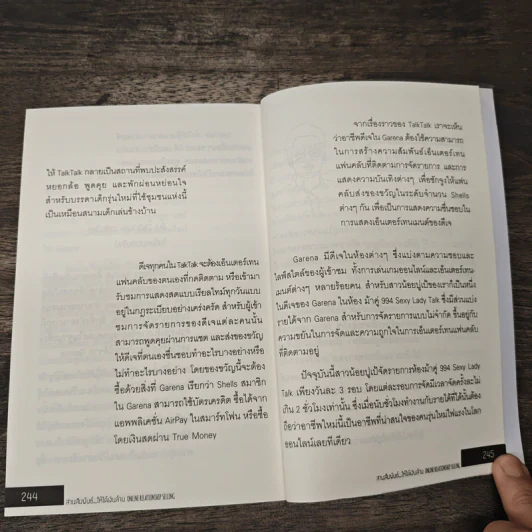 ให้ TalkTalk กลายเป็นสถานที่พบปะสังสรรค์
หยอกล้อ พูดคุย และพักผ่อนหย่อนใจ
สำหรับบรรดาเด็กรุ่นใหม่ที่ใช้ชุมชนแห่งนี้
เป็นเหมือนสนามเด็กเล่นข้างบ้าน
ดีเจทุกคนใน TalkTalk จะต้องเอ็นเตอร์เทน
แฟนคลับของตนเองที่กดติดตาม หรือเข้ามา
รับชมการแสดงสดแบบเรียลไทม์ทุกวันแบบ
อยู่ในกฎระเบียบอย่างเคร่งครัด สำหรับผู้เข้า
ชมการจัดรายการของดีเจแต่ละคนนั้น
สามารถพูดคุยผ่านการแชต และส่งของขวัญ
ให้ดีเจที่ตนเองชื่นชอบทำอะไรบางอย่างหรือ
ไม่ทำอะไรบางอย่าง โดยของขวัญนี้จะต้อง
ซื้อด้วยสิ่งที่ Garena เรียกว่า Shells สมาชิก
ใน Garena สามารถใช้บัตรเครดิต ซื้อได้จาก
แอพพลิเคชั่น AirPay ในสมาร์ทโฟน หรือซื้อ
โดยเงินสดผ่าน True Money
244
สานสัมพันธ์...ให้ได้เงินล้าน ONLINE RELATIONSHIP SELLING
จากเรื่องราวของ TalkTalk เราจะเห็น
ว่าอาชีพดีเจใน Garena ต้องใช้ความสามารถ
ในการสร้างความสัมพันธ์เอ็นเตอร์เทน
แฟนคลับที่ติดตามการจัดรายการ และการ
แสดงความบันเทิงต่างๆ เพื่อชักจูงให้แฟน
คลับส่งของขวัญในระดับจำนวน Shells
ต่างๆ กัน เพื่อเป็นการแสดงความชื่นชอบใน
การแสดงเอ็นเตอร์เทนเมนต์ของดีเจ
Garena มีดีเจในห้องต่างๆ ซึ่งแบ่งตามความชอบและ
ไลฟ์สไตล์ของผู้เข้าชม ทั้งการเล่นเกมออนไลน์และเอ็นเตอร์เทน
เมนต์ต่างๆ หลายร้อยคน สำหรับสาวน้อยปูเป้ของเราก็เป็นหนึ่ง
ในดีเจของ Garena ในห้อง ม้าคู่ 994 Sexy Lady Talk ซึ่งมีส่วนแบ่ง
รายได้จาก Garena สำหรับการจัดรายการแบบไม่จำกัด ขึ้นอยู่กับ
ความขยันในการจัดและความถูกใจในการเอ็นเตอร์เทนแฟนคลับ
ที่ติดตามอยู่
ปัจจุบันนี้สาวน้อยปูเป้จัดรายการห้องม้าคู่ 994 Sexy Lady
Talk เพียงวันละ 3 รอบ โดยแต่ละรอบการจัดมีเวลาจัดครั้งละไม่
เกิน 2 ชั่วโมงเท่านั้น ซึ่งเมื่อนับชั่วโมงทำงานกับรายได้ที่ได้นั้นต้อง
ถือว่าอาชีพใหม่นี้เป็นอาชีพที่น่าสนใจของคนรุ่นใหม่ไฟแรงในโลก
ออนไลน์เลยทีเดียว
245
สานสัมพันธ์...ให้ได้เงินล้าน ONLINE RELATIONSHIP SELLING